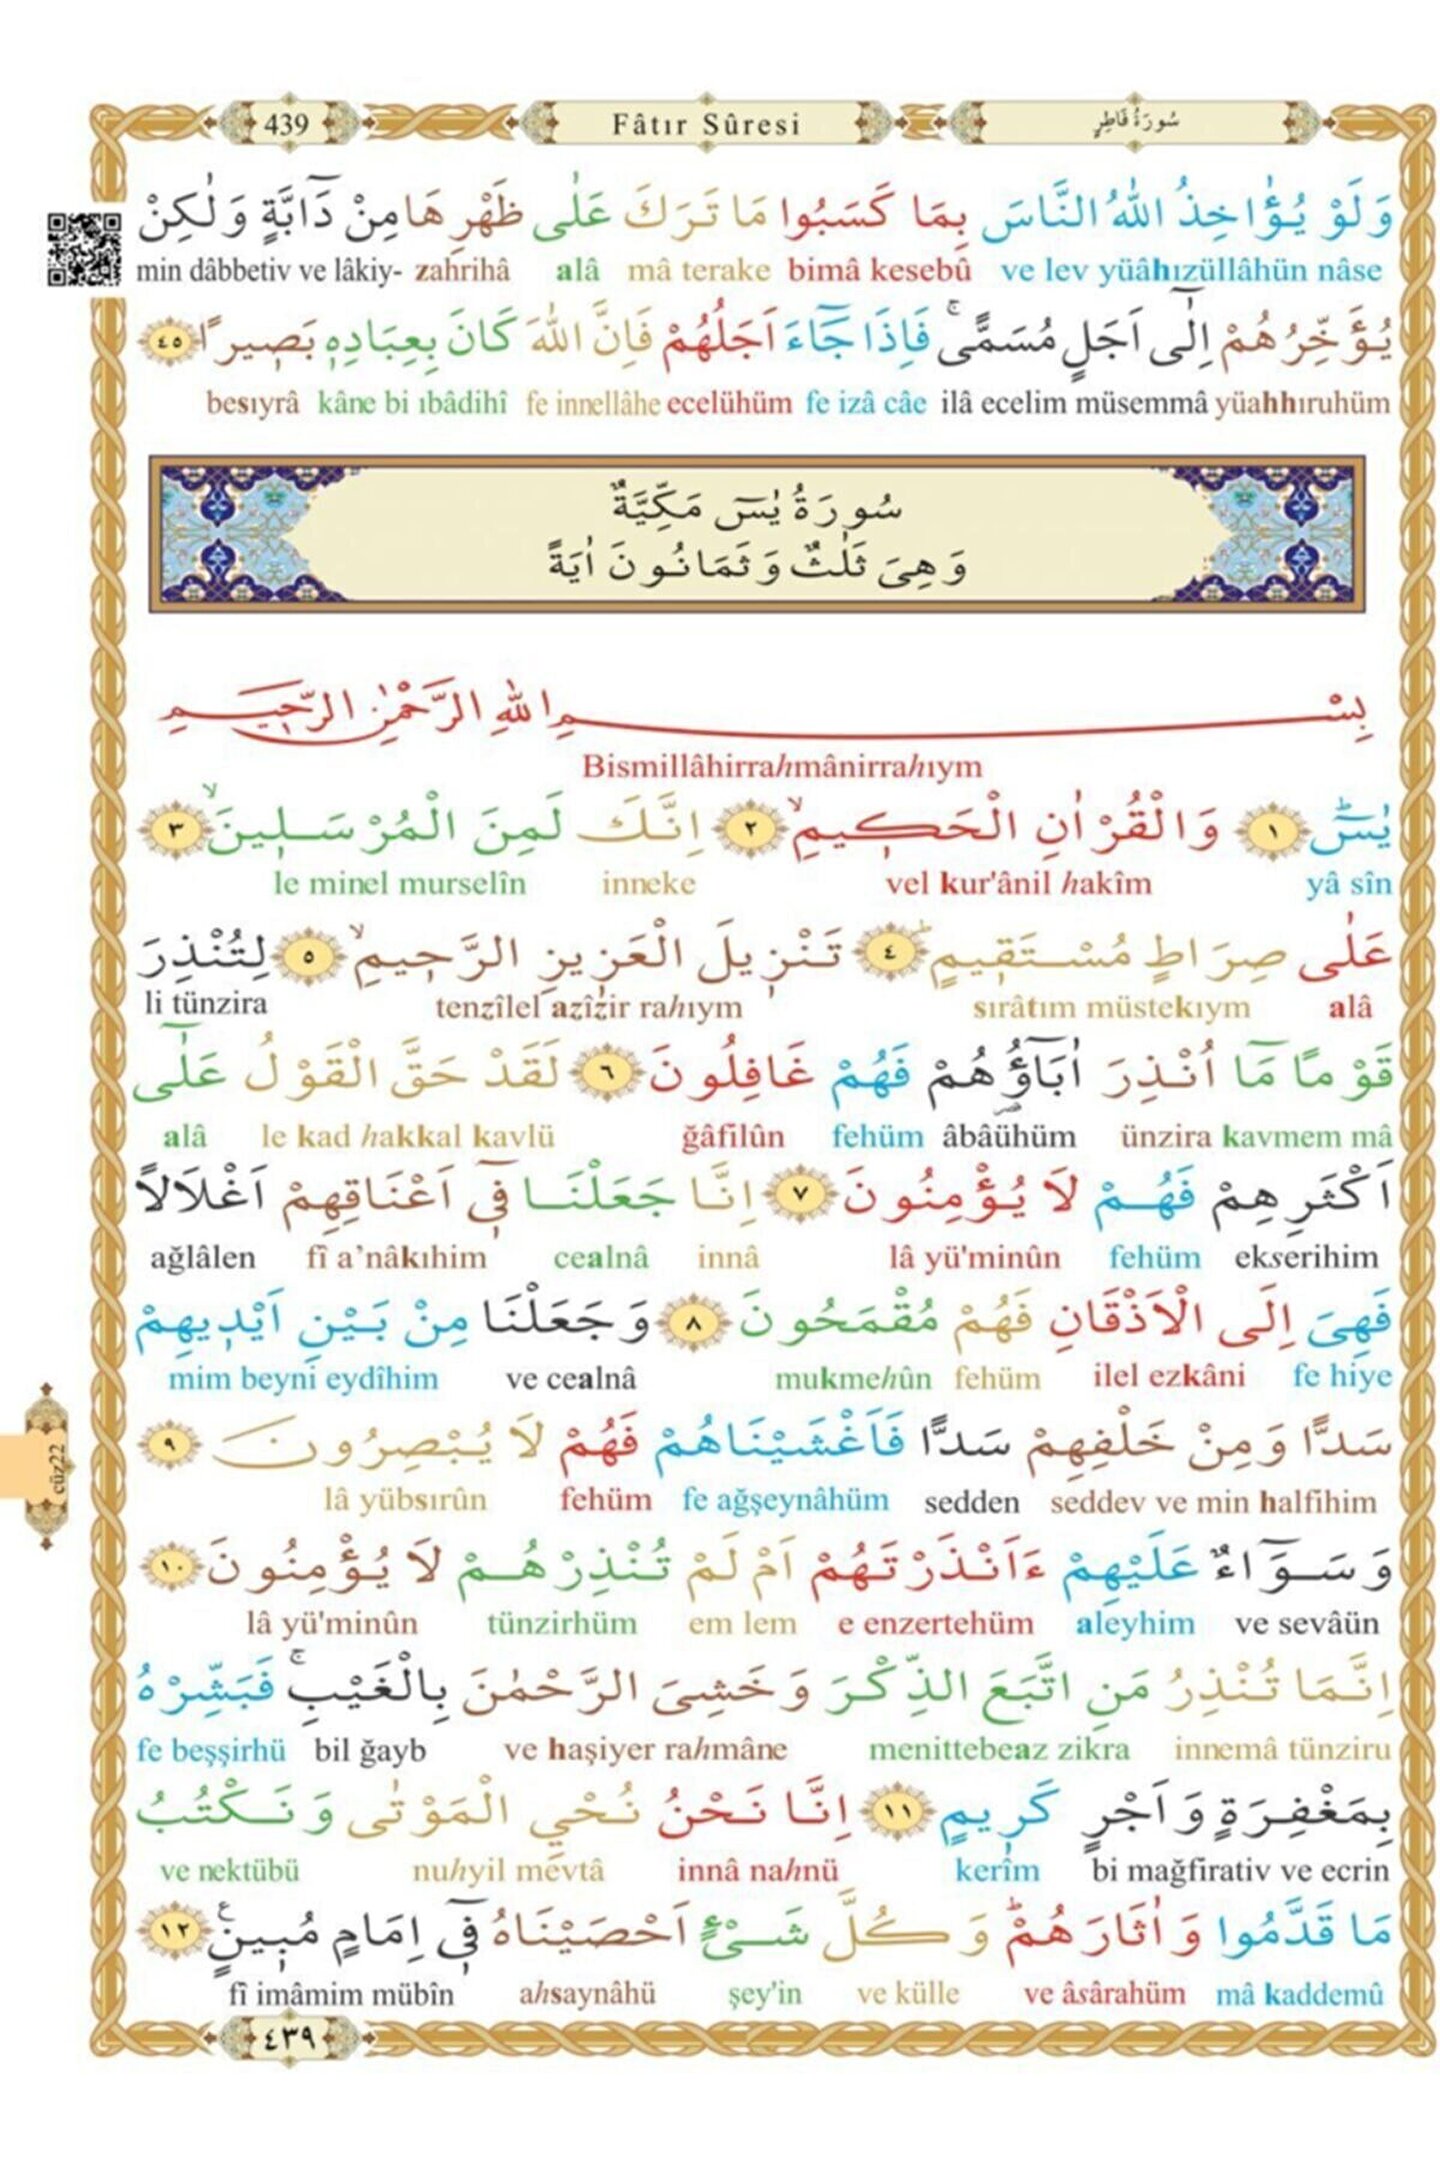 439 Fâtır Sûresi سُورَةُ فَاطِرٍ
وَلَوْ يُؤَٰاخِذُ اللّٰهُ النَّاسَ بِمَا كَسَبُوا مَا تَرَكَ عَلٰى ظَهْرِهَا مِنْ دَٓابَّةٍ وَلٰكِنْ
min dâbbetiv ve lâkiy- zahrihâ alâ mâ terake bimâ kesebû ve lev yüâhızüllâhün nâse
يُؤَخِّرُهُمْ اِلٰٓى اَجَلٍ مُسَمًّىۚ فَاِذَا جَٓاءَ اَجَلُهُمْ فَاِنَّ اللّٰهَ كَانَ بِعِبَادِه۪ بَص۪يرًا ٤٥
besıyrâ kâne bi ıbâdihî fe innellâhe ecelühüm fe izâ câe ilâ ecelim müsemmâ yüahhıruhüm
سُورَةُ يٰسٓ مَكِّيَّةٌ
وَهِيَ ثَلٰثٌ وَثَمَانُونَ اٰيَةً
بِسْمِ اللّٰهِ الرَّحْمٰنِ الرَّح۪يمِ
Bismillâhirrahmânirrahıym
يٰسٓۜ ١ وَالْقُرْاٰنِ الْحَك۪يمِۙ ٢ اِنَّكَ لَمِنَ الْمُرْسَل۪ينَۙ ٣
le minel murselîn inneke vel kur'ânil hakîm yâ sîn
عَلٰى صِرَاطٍ مُسْتَق۪يمٍۜ ٤ تَنْز۪يلَ الْعَز۪يزِ الرَّح۪يمِۙ ٥ لِتُنْذِرَ
li tünzira tenzîlel azîzir rahıym sırâtım müstekıym alâ
قَوْمًا مَٓا اُنْذِرَ اٰبَٓاؤُ۬هُمْ فَهُمْ غَافِلُونَ ٦ لَقَدْ حَقَّ الْقَوْلُ عَلٰٓى
alâ le kad hakkal kavlü ğâfilûn fehüm âbâühüm ünzira kavmem mâ
اَكْثَرِهِمْ فَهُمْ لَا يُؤْمِنُونَ ٧ اِنَّا جَعَلْنَا ف۪ٓي اَعْنَاقِهِمْ اَغْلَالًا
ağlâlen fî a’nâkıhim cealnâ innâ lâ yü'minûn fehüm ekserihim
فَهِيَ اِلَى الْاَذْقَانِ فَهُمْ مُقْمَحُونَ ٨ وَجَعَلْنَا مِنْ بَيْنِ اَيْد۪يهِمْ
mim beyni eydîhim ve cealnâ mukmehûn fehüm ilel ezkâni fe hiye
سَدًّا وَمِنْ خَلْفِهِمْ سَدًّا فَاَغْشَيْنَاهُمْ فَهُمْ لَا يُبْصِرُونَ ٩
lâ yübsırûn fehüm fe ağşeynâhüm sedden seddev ve min halfihim
cüz22
وَسَوَٓاءٌ عَلَيْهِمْ ءَاَنْذَرْتَهُمْ اَمْ لَمْ تُنْذِرْهُمْ لَا يُؤْمِنُونَ ١٠
lâ yü'minûn tünzirhüm em lem e enzertehüm aleyhim ve sevâün
اِنَّمَا تُنْذِرُ مَنِ اتَّبَعَ الذِّكْرَ وَخَشِيَ الرَّحْمٰنَ بِالْغَيْبِۚ فَبَشِّرْهُ
fe beşşirhü bil ğayb ve haşiyer rahmâne menittebeaz zikra innemâ tünziru
بِمَغْفِرَةٍ وَاَجْرٍ كَر۪يمٍ ١١ اِنَّا نَحْنُ نُحْيِ الْمَوْتٰى وَنَكْتُبُ
ve nektübü nuhyil mevtâ innâ nahnü kerîm bi mağfirativ ve ecrin
مَا قَدَّمُوا وَاٰثَارَهُمْۜ وَكُلَّ شَيْءٍ اَحْصَيْنَاهُ ف۪ٓي اِمَامٍ مُب۪ينٍ۟ ١٢
fî imâmim mübîn ahsaynâhü şey'in ve külle ve âsârahüm mâ kaddemû
٤٣٩